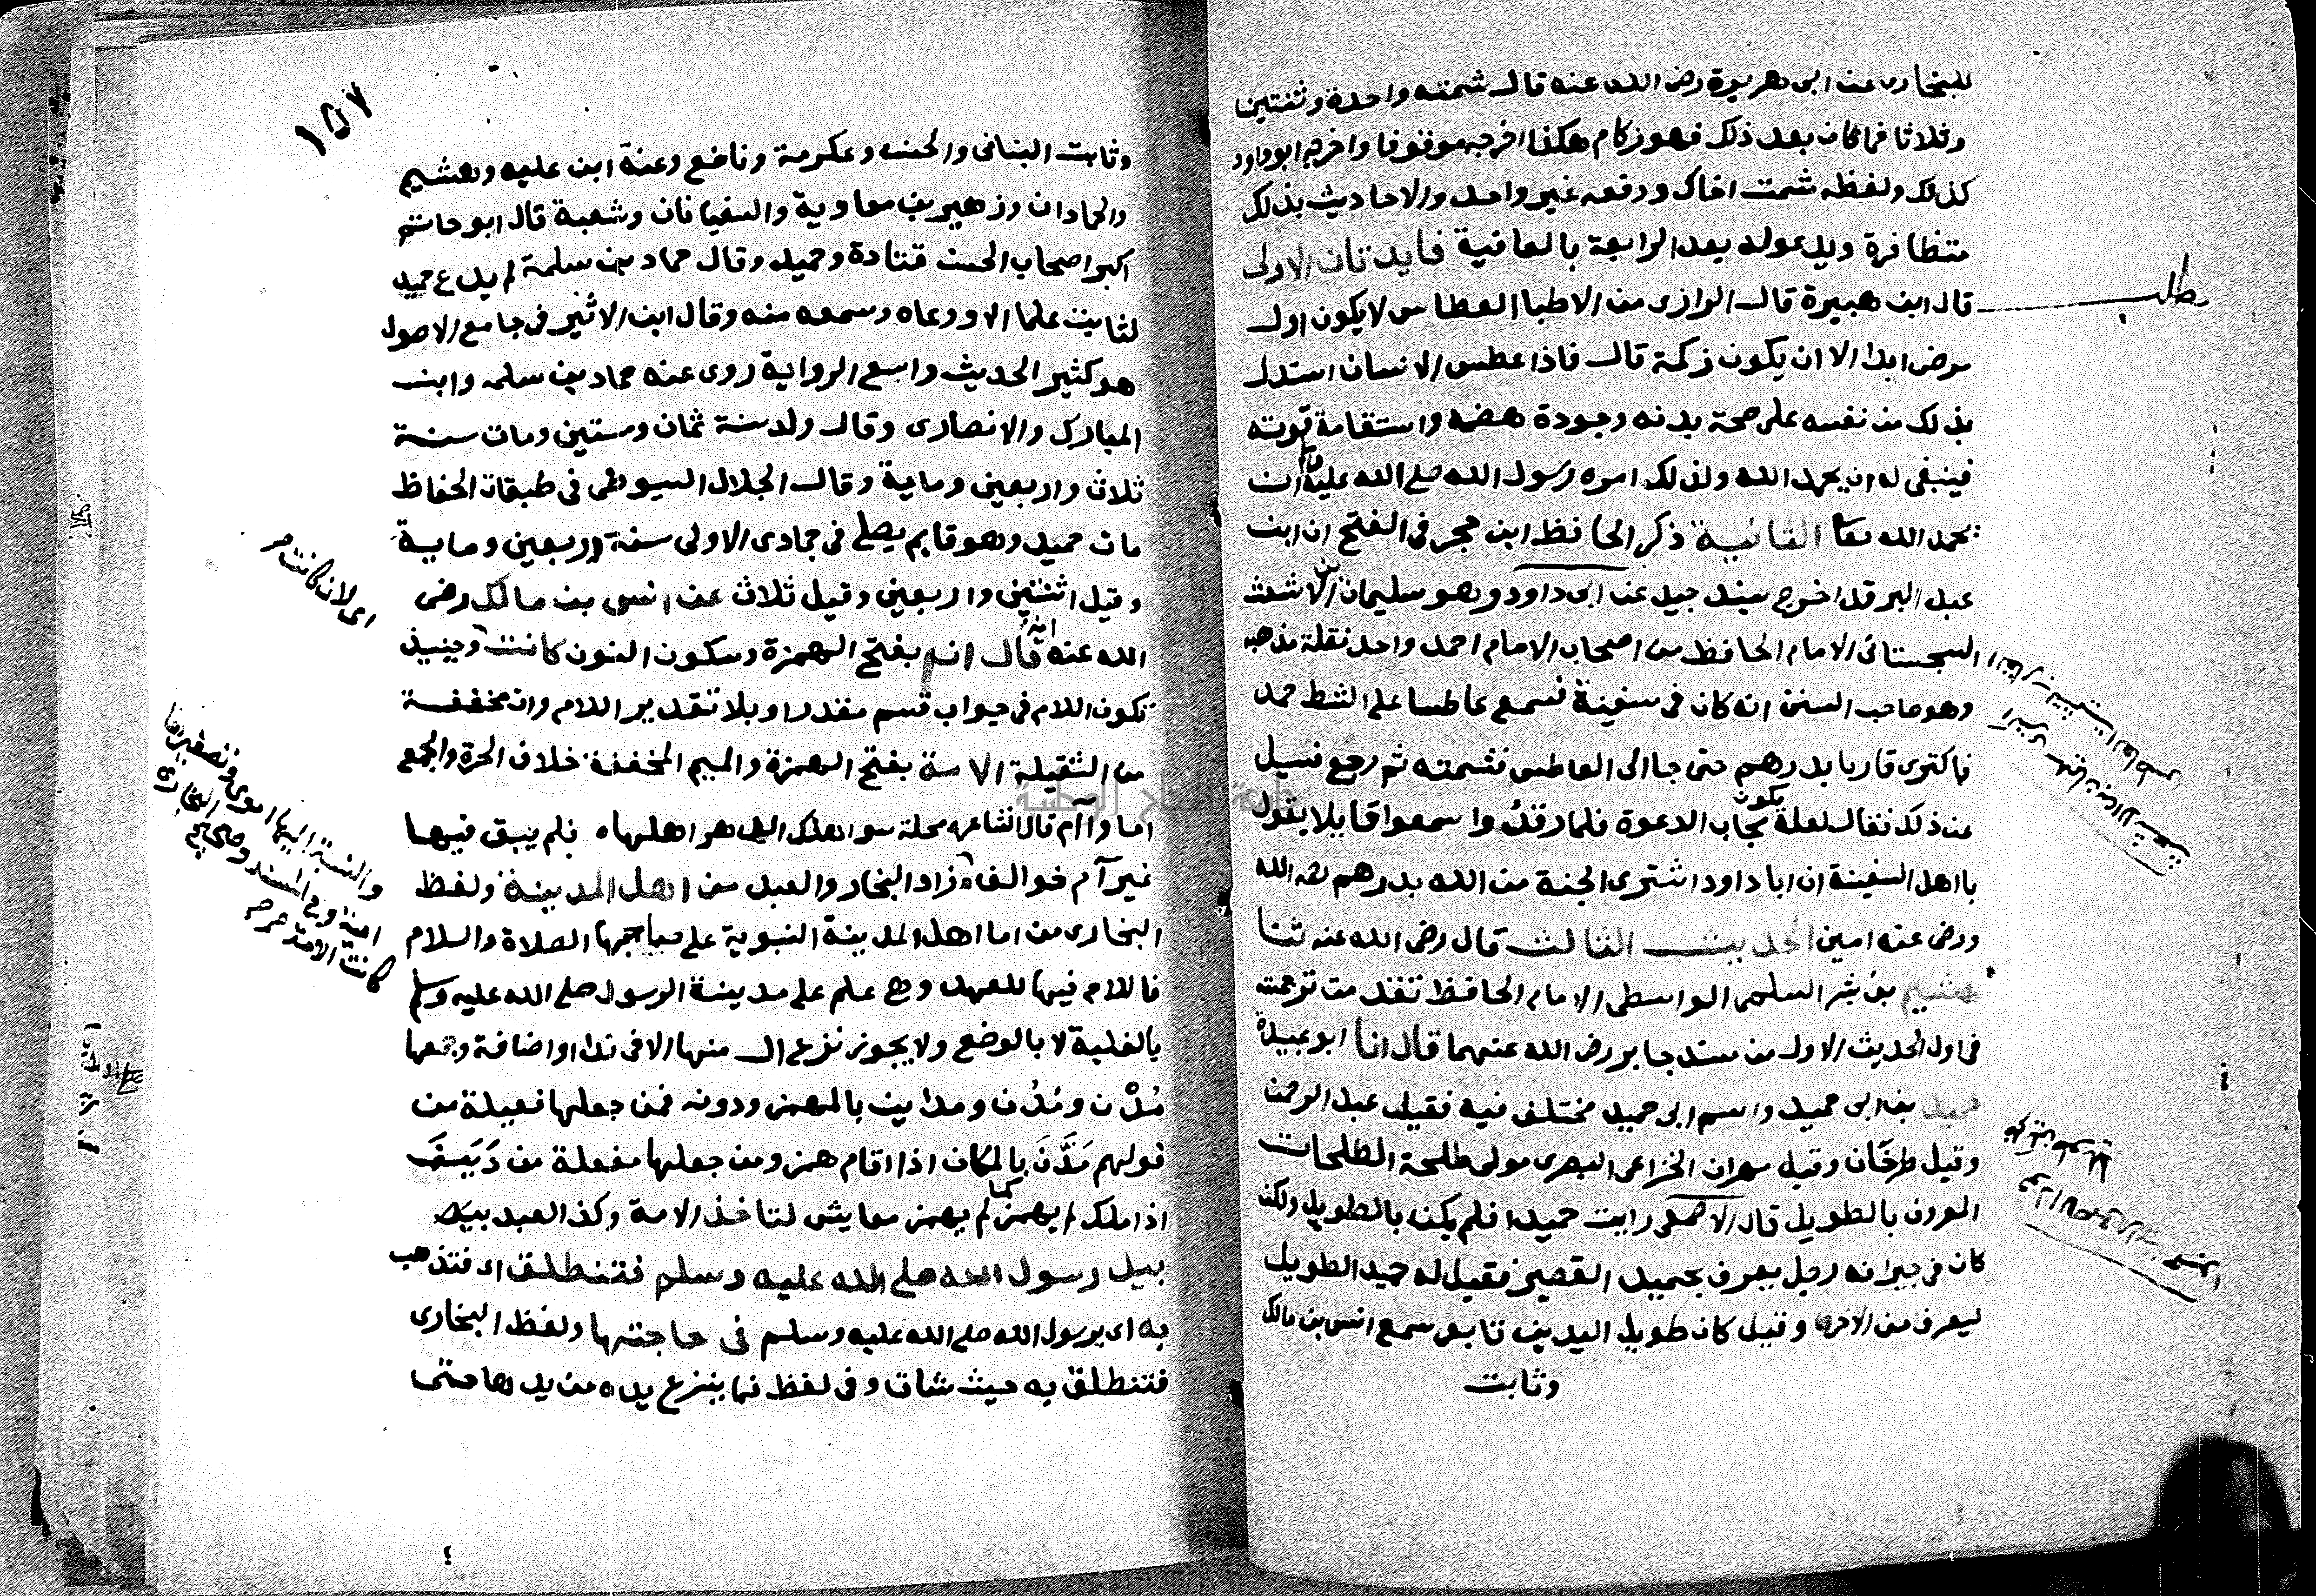 للبخارى عن ابى هريرة رضى الله عنه قال شمته واحدة وثنتين
وثلاثا فما كان بعد ذلك فهو زكام هكذا اخرجه موقوفا واخرجه ابو داود
كذلك ولفظه شمت اخاك ورفعه غير واحد والاحاديث بذلك
متظافرة ويدعو له بعد الرابعة بالعافية فايدتان الاولى
قال ابن هبيرة قال الرازى من الاطبا العطاس لا يكون اول
مرض ابدا الا ان يكون زكمة قال فاذا عطس الانسان استدل
بذلك من نفسه على صحة بدنه وجودة هضمه واستقامة قوته
فينبغى له ان يحمد الله ولذلك امره رسول الله صلى الله عليه ان
يحمد الله تعا الثانية ذكر الحافظ ابن حجر فى الفتح ان ابن
عبد البر قد اخرج بسند جيد عن ابى داود وهو سليمان بن الاشعث
السجستانى الامام الحافظ من اصحاب الامام احمد واحد نقلة مذهبه
وهو صاحب السنن انه كان فى سفينة فسمع عاطسا على الشط حمد
فاكترى قاربا بدرهم حتى جا الى العاطس فشمته ثم رجع فسيل
عن ذلك فقال لعله يكون مجاب الدعوة فلما رقدوا سمعوا قايلا يقول
يا اهل السفينة ان ابا داود اشترى الجنة من الله بدرهم رحمه الله
ورضى عنه امين الحديث الثالث قال رضى الله عنه ثنا
هشيم بن بشر السلمى الواسطى الامام الحافظ تقدمت ترجمته
فى اول الحديث الاول من مسند جابر رضى الله عنهما قال انا ابو عبيدة
حميد بن ابى حميد واسم ابى حميد مختلف فيه فقيل عبد الرحمن
وقيل طرخان وقيل مهران الخزاعى البصرى مولى طلحة الطلحات
المعروف بالطويل قال الاصمعى رايت حميدا فلم يكن بالطويل ولكن
كان فى جيرانه رجل يعرف بحميد القصير فقيل له حميد الطويل
ليعرف من الاخر وقيل كان طويل اليدين تابعى سمع انس بن مالك
وثابت
مطلب
١٥٧
وثابت البنانى والحسن وعكرمة ونافع وعنه ابن عليه وهشيم
والحمادان وزهير بن معاوية والسفيانان وشعبة قال ابو حاتم
اكبر اصحاب الحسن قتادة وحميد وقال حماد بن سلمة لم يدع حميد
لثابت علما الا ووعاه وسمعه منه وقال ابن الاثير فى جامع الاصول
هو كثير الحديث واسع الرواية روى عنه حماد بن سلمه وابن
المبارك والانصارى وقال ولد سنة ثمان وستين ومات سنة
ثلاث واربعين وماية وقال الجلال السيوطى فى طبقات الحفاظ
مات حميد وهو قايم يصلى فى جمادى الاولى سنة اربعين وماية
وقيل اثنتين واربعين وقيل ثلاث عن انس بن مالك رضى
الله عنه انه قال ان بفتح الهمزة وسكون النون كانت وحينيذ
تكون اللام فى جواب قسم مقدر او بلا تقدير اللام وان مخففة
من الثقيلة الامة بفتح الهمزة والميم المخففة خلاف الحرة والجمع
اما وآم قال الشاعر محلة سو اهلك الدهر اهلها فلم يبق فيها
غير آم خوالف زاد البخار والعبد من اهل المدينة ولفظ
البخارى من اما اهل المدينة النبوية على صاحبها الصلاة والسلام
فاللام فيها للعهد وهى علم على مدينة الرسول صلى الله عليه وسلم
بالغلبة لا بالوضع ولا يجوز نزع ال منها الا فى ندا او اضافة وجمعها
مُدْن ومُدُن ومداين بالهمز ودونه فمن جعلها فعيلة من
قولهم مَدَنَ بالمكان اذا اقام همز ومن جعلها مفعلة من
اذا ملك لم يهمز كما لم يهمز معايش لتاخذ الامة وكذا العبد بيد
بيد رسول الله صلى الله عليه وسلم فتنطلق اى فتذهب
به اى برسول الله صلى الله عليه وسلم فى حاجتها ولفظ البخارى
فتنطلق به حيث شات وفى لفظ فما ينزع يده من يدها حتى
اى لان كانت
والنسبة اليها اموى وتصغيرها
امية وفى المسند وصحيح البخارى
كانت الامة